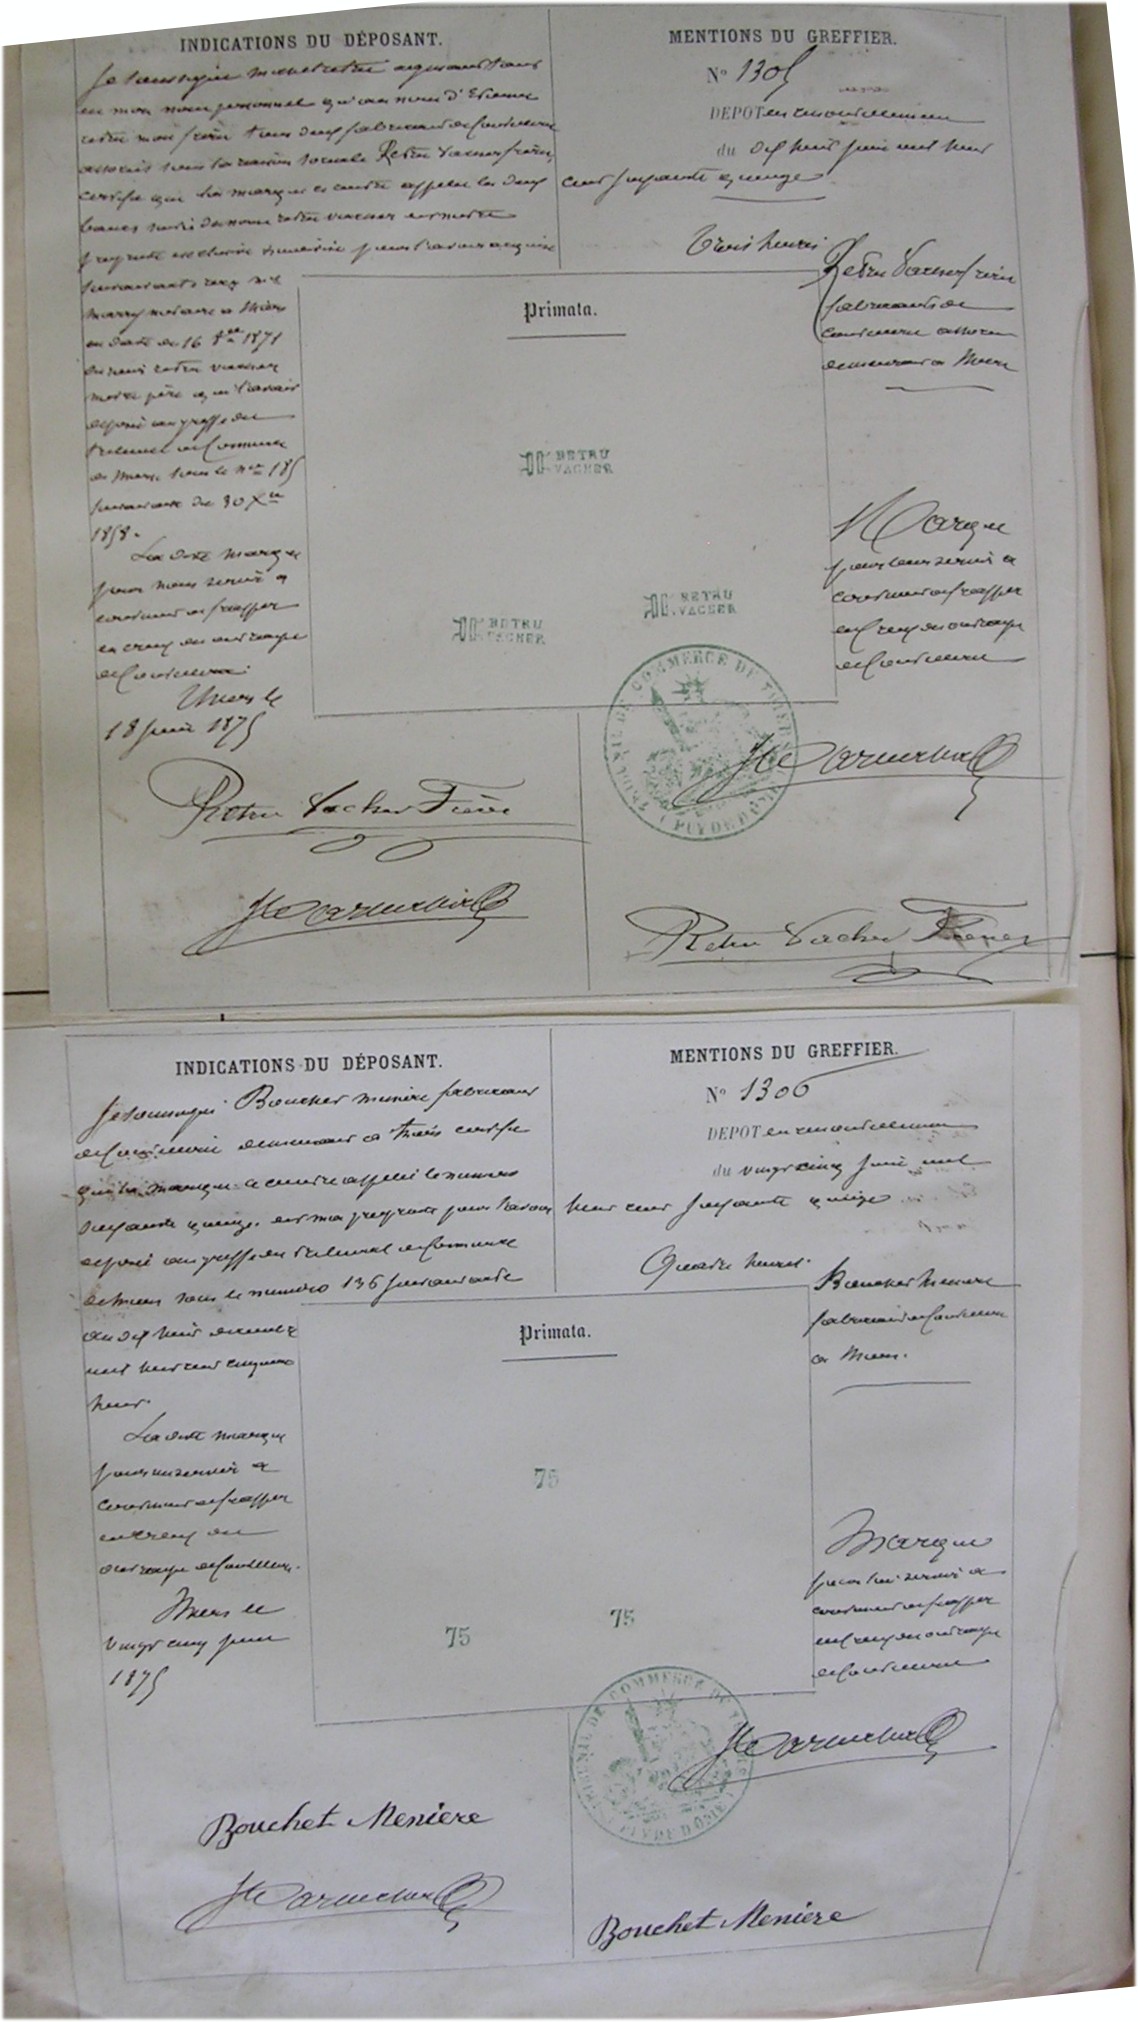 INDICATIONS DU DÉPOSANT.
Je soussigné agissant tant
en mon nom personnel qu'au nom d'Etienne
Retru mon frère tous deux fabricants de Coutellerie
associés sous la raison sociale Retru Vacher frères,
certifie que la marque ci contre appelée les deux
suivis du nom Retru Vacher est notre
propriété exclusive pour l'avoir acquise
suivant acte reçu Me
notaire à Thiers
en date du 16 1871
Retru Vacher
notre père qui l'avait
déposé au greffe du
tribunal de Commerce
de Thiers sous le n° 185
suivant acte du 30 Xbre
1858.
La dite marque
pour nous servir à
continuer de frapper
en creux du ouvrage
de Coutellerie.
Thiers le
18 Juin 1875
Retru Vacher Frères
MENTIONS DU GREFFIER.
N° 1305
DEPOT en renouvellement
du dix huit Juin mil huit
cent soixante quinze
Trois heures
Retru Vacher frères
fabricants de
coutellerie associés
demeurant à Thiers
Primata.
RETRU
VACHER
RETRU
VACHER
RETRU
VACHER
Marque
pour leur servir à
continuer de frapper
en creux du ouvrage
de Coutellerie
TRIBUNAL DE COMMERCE DE THIERS
(PUY DE DOME)
Retru Vacher Frères
INDICATIONS DU DÉPOSANT.
Je soussigné Bouchet Menière fabricant
de Coutellerie demeurant à Thiers certifie
que la marque ci contre appelée le numéro
soixante quinze est ma propriété pour l'avoir
déposé au greffe du tribunal de Commerce
de Thiers sous le numéro 136 suivant acte
du dix huit décembre
mil huit cent cinquante
huit.
La dite marque
pour me servir à
continuer de frapper
en creux du
ouvrage de Coutellerie.
Thiers le
vingt cinq juin
1875
Bouchet Meniere
MENTIONS DU GREFFIER.
N° 1306
DEPOT en renouvellement
du vingt cinq Juin mil
huit cent soixante quinze
Quatre heures.
Bouchet Menière
fabricant de Coutellerie
à Thiers.
Primata.
75
75
75
Marque
pour lui servir à
continuer de frapper
en creux du ouvrage
de Coutellerie
TRIBUNAL DE COMMERCE DE THIERS
(PUY DE DOME)
Bouchet Meniere